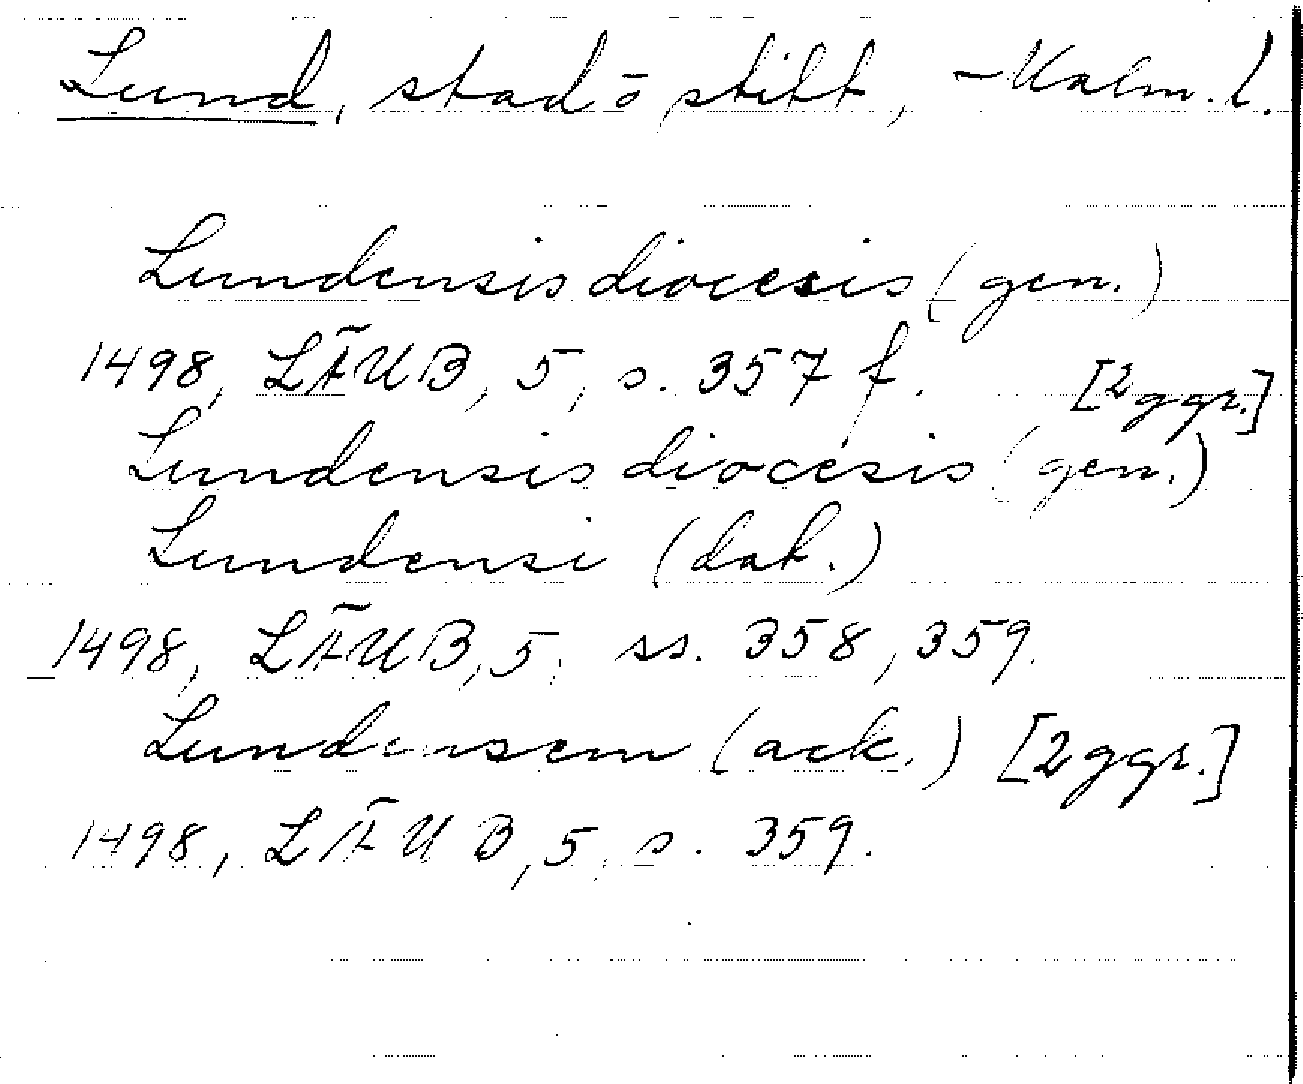 Lund, stad o stift, – Malm. l.
Lundensis diocesis (gen.)
1498, LÄUB, 5, s. 357 f. [2 ggr.]
Lundensis diocesis (gen.)
Lundensi (dat.)
1498, LÄUB, 5, ss. 358, 359.
Lundensem (ack.) [2 ggr.]
1498, LÄUB, 5, s. 359.